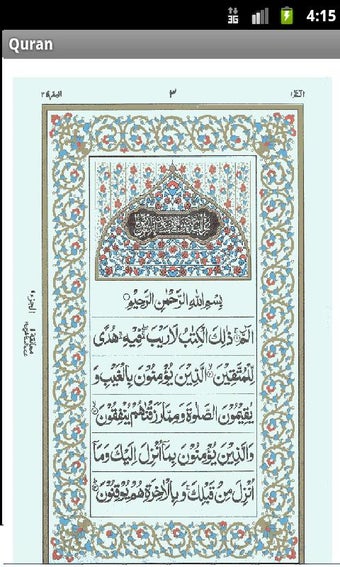 4:15
Quran
٣
بِسْمِ اللهِ الرَّحْمٰنِ الرَّحِيْمِ
الٓمّٓ ذٰلِكَ الْكِتٰبُ لَا رَيْبَ فِيْهِ هُدًى
لِّلْمُتَّقِيْنَ الَّذِيْنَ يُؤْمِنُوْنَ بِالْغَيْبِ وَ
يُقِيْمُوْنَ الصَّلٰوةَ وَمِمَّا رَزَقْنٰهُمْ يُنْفِقُوْنَ
وَالَّذِيْنَ يُؤْمِنُوْنَ بِمَآ اُنْزِلَ اِلَيْكَ وَمَآ
اُنْزِلَ مِنْ قَبْلِكَ وَبِالْاٰخِرَةِ هُمْ يُوْقِنُوْنَ